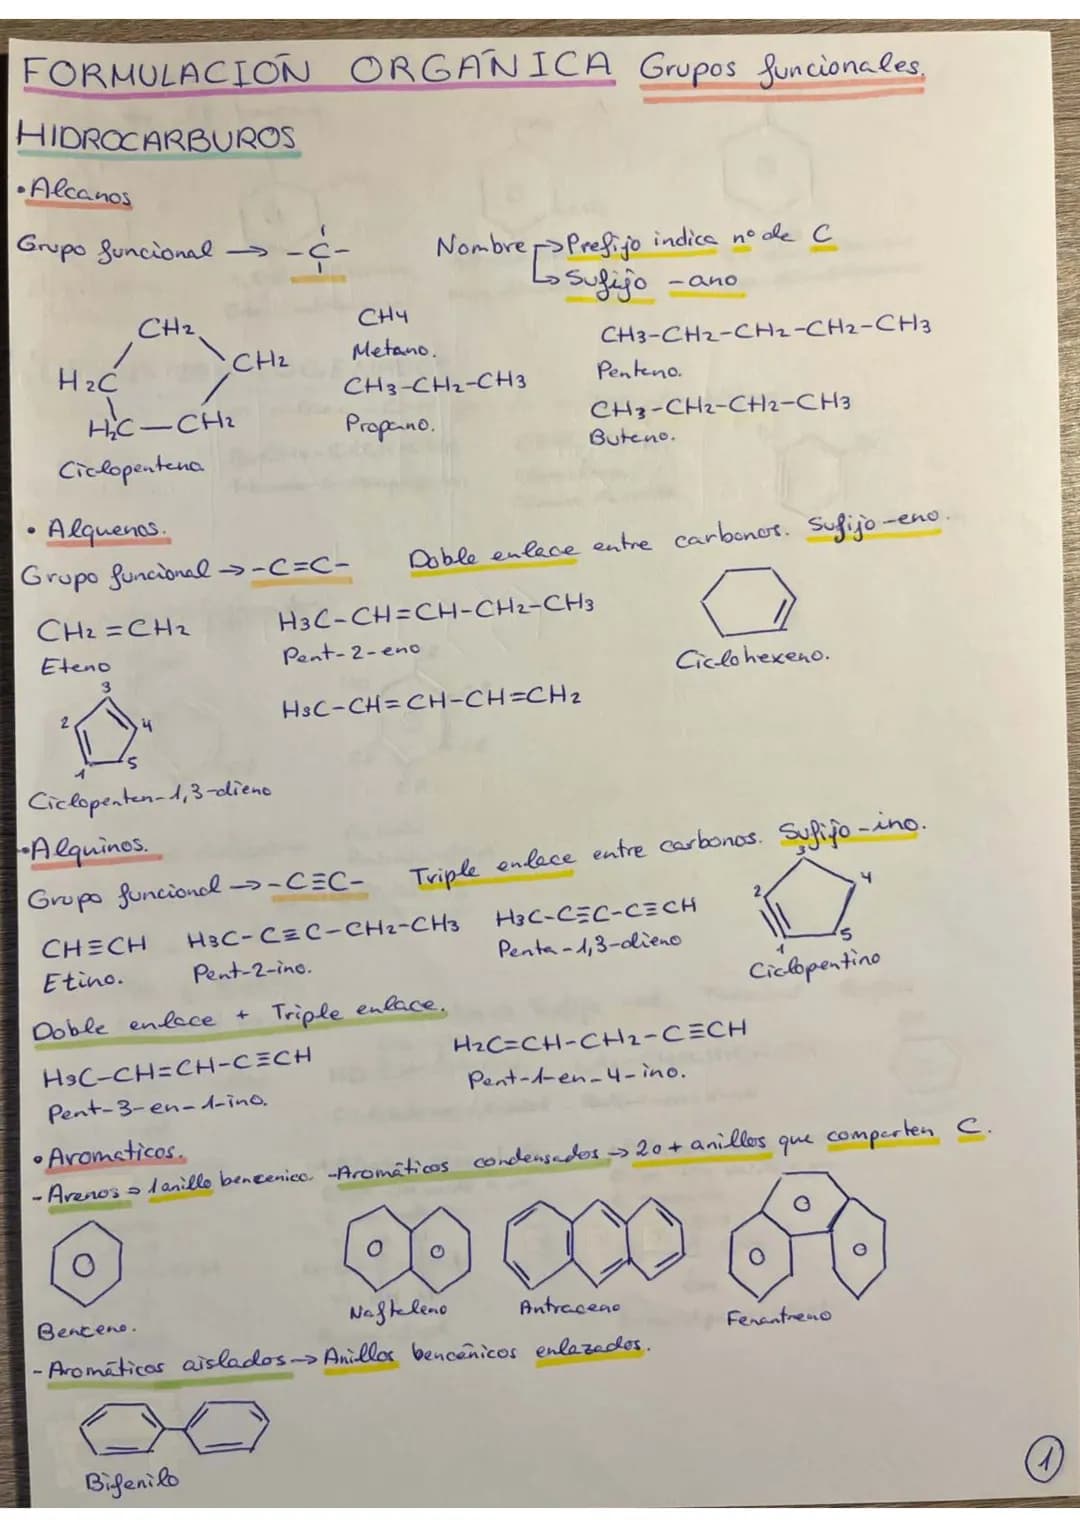 FORMULACIÓN ORGÁNICA Grupos funcionales.
HIDROCARBUROS
• Alcanos
Grupo funcional → -C-
Nombre → Prefijo indica nº de C
↳ Sufijo -ano
CH2
CH2
H2C
H2C-CH2
Ciclopentano
CH4
Metano.
CH3-CH2-CH3
Propano.
CH3-CH2-CH2-CH2-CH3
Pentano.
CH3-CH2-CH2-CH3
Butano.
• Alquenos.
Grupo funcional → -C=C- Doble enlace entre carbonos. Sufijo -eno.
CH2=CH2
Eteno
H3C-CH=CH-CH2-CH3
Pent-2-eno
Ciclohexeno.
H3C-CH=CH-CH=CH2
3
2
4
1
5
Ciclopenten-1,3-dieno
• Alquinos.
Grupo funcional → -C≡C- Triple enlace entre carbonos. Sufijo -ino.
CH≡CH
Etino.
H3C-C≡C-CH2-CH3
Pent-2-ino.
H3C-C≡C-C≡CH
Penta-1,3-dieno
3
2
4
1
5
Ciclopentino
Doble enlace + Triple enlace.
H3C-CH=CH-C≡CH
Pent-3-en-1-ino.
H2C=CH-CH2-C≡CH
Pent-1-en-4-ino.
• Aromaticos.
- Arenos → 1 anillo bencenico. - Aromáticos condensados → 2 o + anillos que comparten C.
Benceno.
Naftaleno
Antraceno
Fenantreno
- Aromáticos aislados → Anillos bencénicos enlazados.
Bifenilo
1